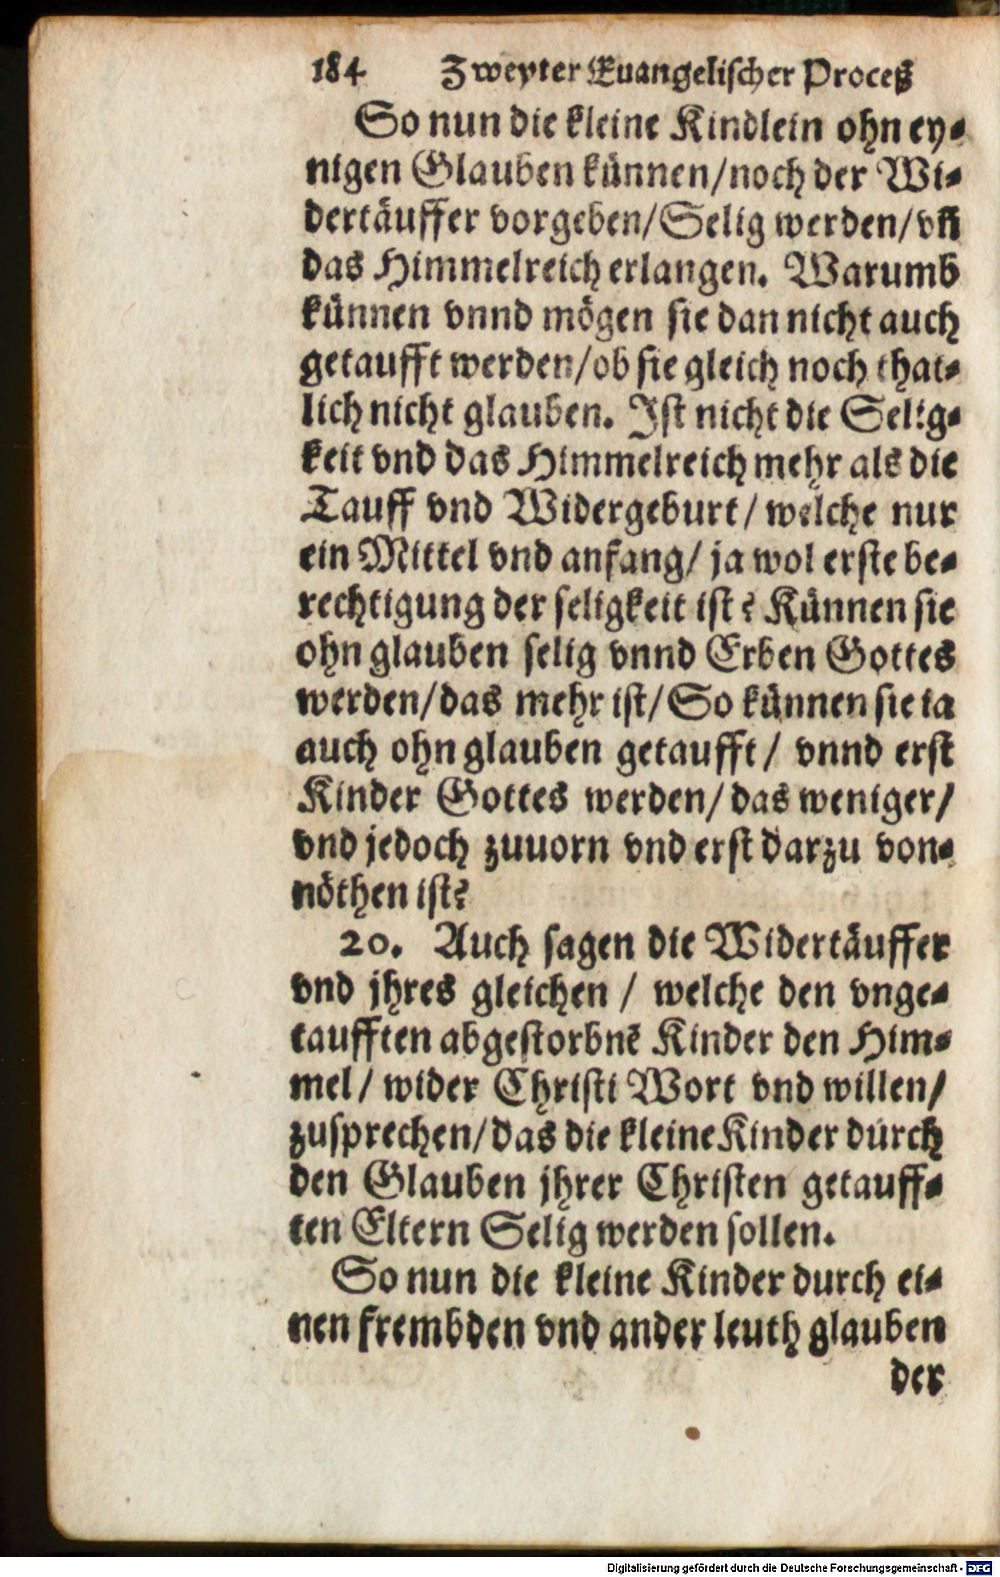 184 Zweyter Euangelischer Proceß
So nun die kleine Kindlein ohn ey⸗
nigen Glauben künnen/noch der Wi⸗
dertäuffer vorgeben/Selig werden/vn̄
das Himmelreich erlangen. Warumb
künnen vnnd mögen sie dan nicht auch
getaufft werden/ob sie gleich noch that⸗
lich nicht glauben. Ist nicht die Selig⸗
keit vnd das Himmelreich mehr als die
Tauff vnd Widergeburt/ welche nur
ein Mittel vnd anfang/ ja wol erste be⸗
rechtigung der seligkeit ist? Künnen sie
ohn glauben selig vnnd Erben Gottes
werden/das mehr ist/So künnen sie ia
auch ohn glauben getaufft/ vnnd erst
Kinder Gottes werden/das weniger/
vnd jedoch zuuorn vnd erst darzu von⸗
nöthen ist?
20. Auch sagen die Widertäuffer
vnd jhres gleichen / welche den vnge⸗
taufften abgestorbnẽ Kinder den Him⸗
mel/ wider Christi Wort vnd willen/
zusprechen/das die kleine Kinder durch
den Glauben jhrer Christen getauff⸗
ten Eltern Selig werden sollen.
So nun die kleine Kinder durch ei⸗
nen frembden vnd ander leuth glauben
der
Digitalisierung gefördert durch die Deutsche Forschungsgemeinschaft - DFG